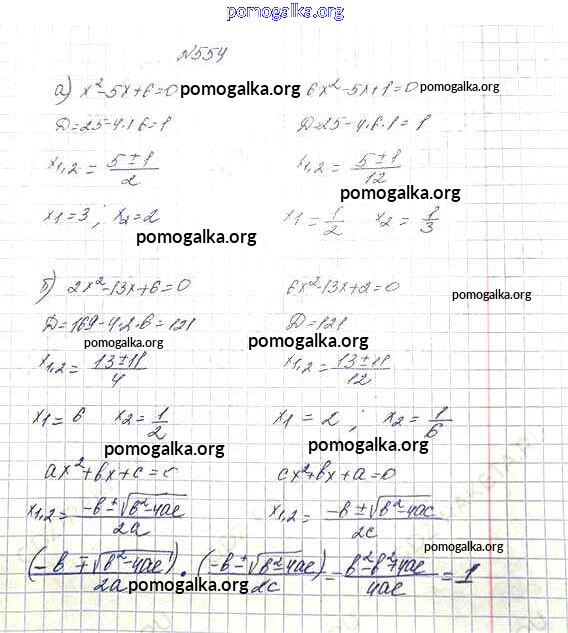 pomogalka.org
№554
а) x²-5x+6=0 pomogalka.org 6x²-5x+1=0 pomogalka.org
Д=25-4·1·6=1 Д=25-4·6·1=1
x1,2 = (5±1)/2 x1,2 = (5±1)/12
pomogalka.org
x1=3; x2=2 x1=1/2 x2=1/3
pomogalka.org
б) 2x²-13x+6=0 6x²-13x+2=0 pomogalka.org
Д=169-4·2·6=121 Д=121
pomogalka.org pomogalka.org
x1,2=(13±11)/4 x1,2=(13±11)/12
x1=6 x2=1/2 x1=2; x2=1/6
pomogalka.org pomogalka.org
ax²+bx+c=c cx²+bx+a=0
x1,2=(-b±√(b²-4ac))/2a x1,2=(-b±√(b²-4ac))/2c
pomogalka.org
(-b∓√(b²-4ac))/2a · (-b±√(b²-4ac))/2c = (b²-b²+4ac)/4ac = 1
pomogalka.org